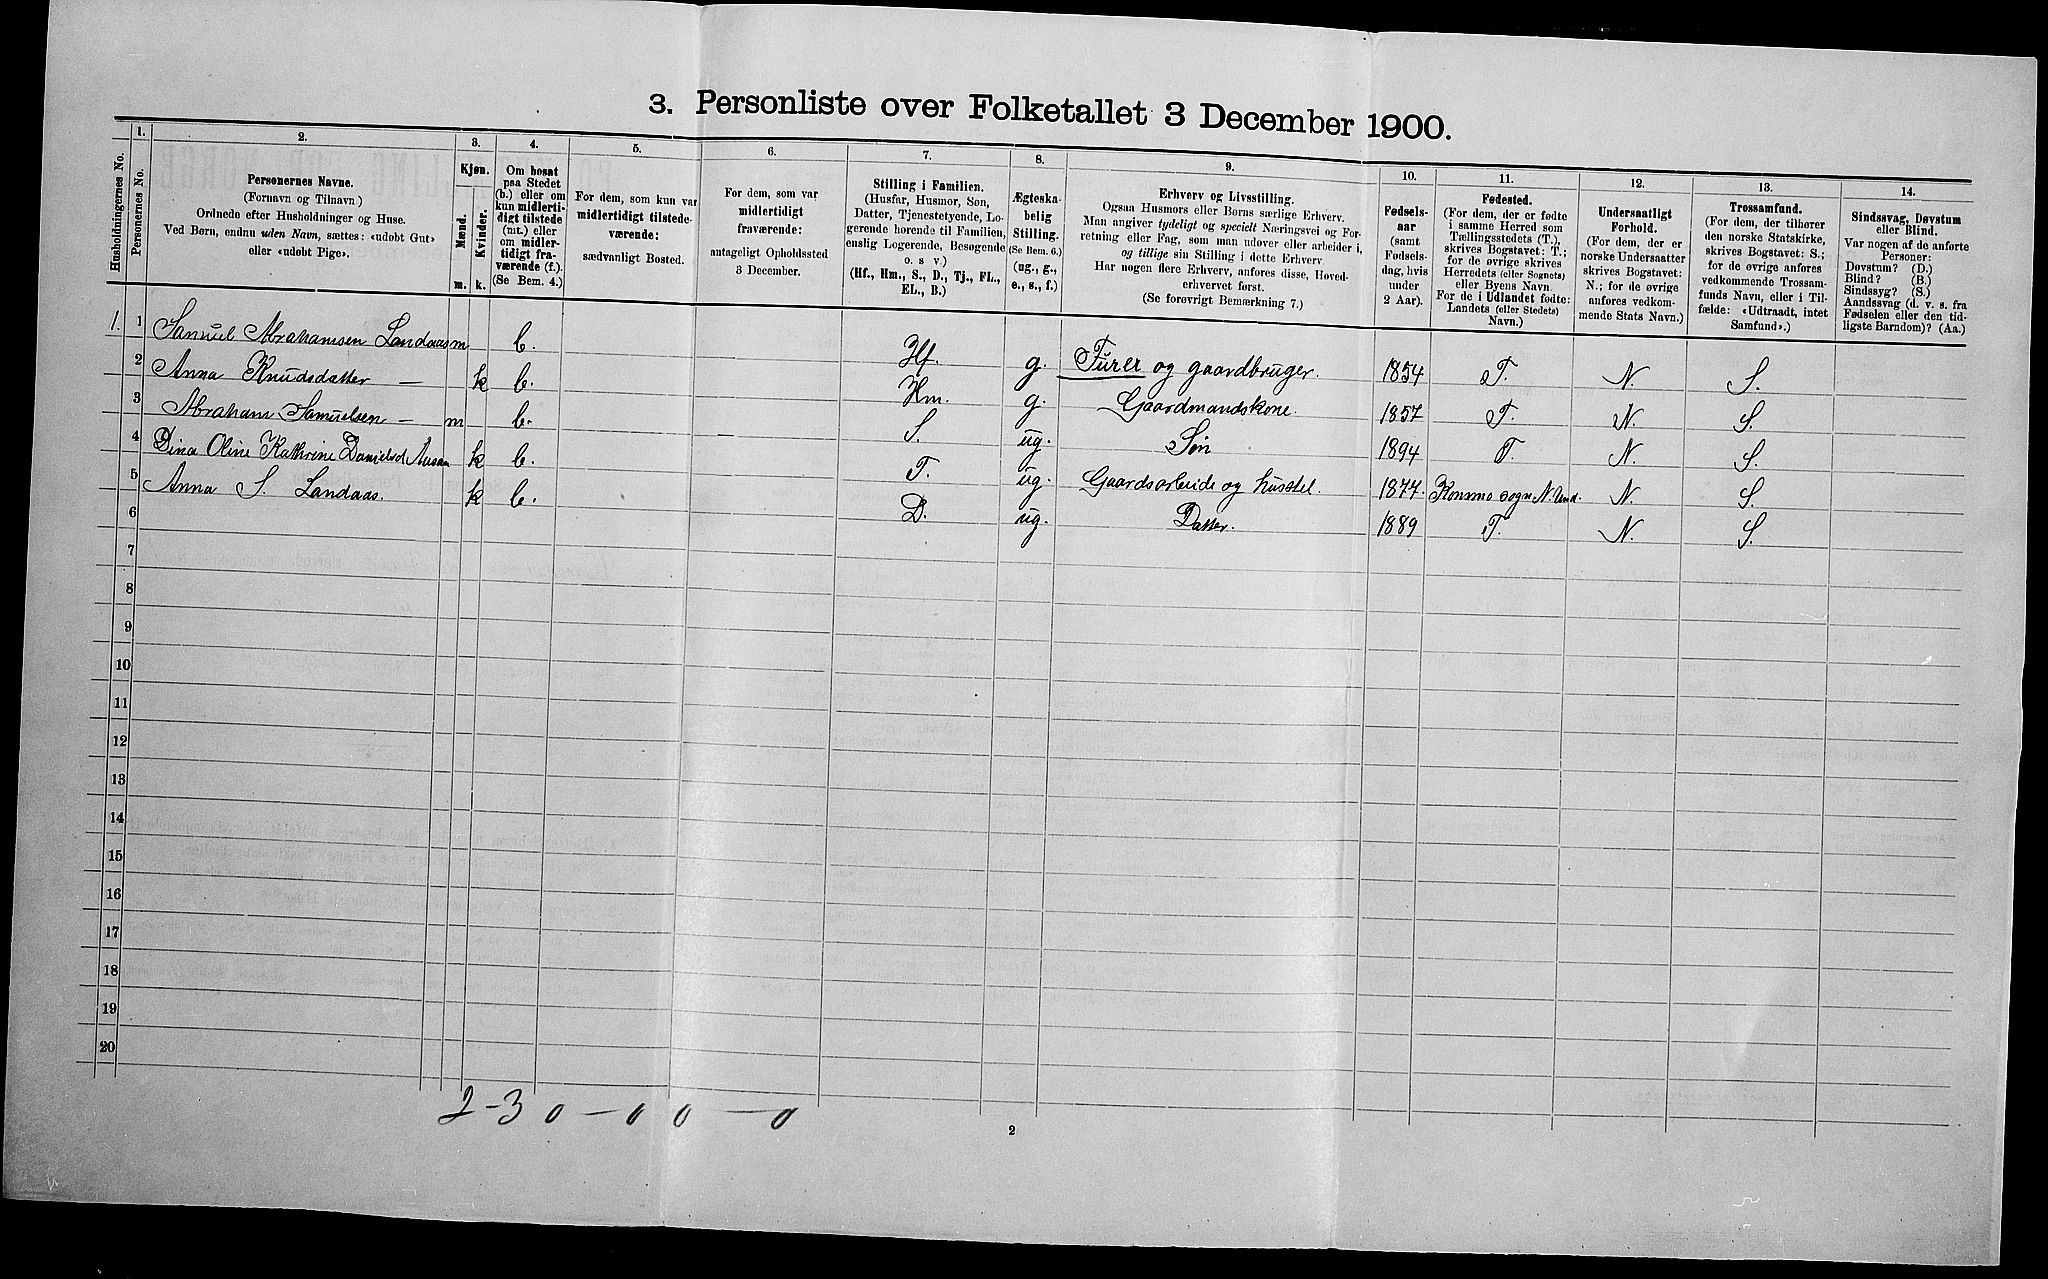 3. Personliste over Folketallet 3 December 1900.
Husholdningernes No.
1.
Personernes No.
2.
Personernes Navne.
(Fornavn og Tilnavn)
Ordnede efter Husholdninger og Huse.
Ved Børn, endnu uden Navn, sættes: «udøbt Gut»
eller «udøbt Pige».
3.
Kjøn.
Mænd.
Kvinder.
m. k.
4.
Om bosat
paa Stedet
(b.) eller om
kun midlerti-
digt tilstede
(mt.) eller
om midler-
tidigt fra-
værende (f.).
(Se Bem. 4.)
5.
For dem, som kun var
midlertidigt tilstede-
værende:
sædvanligt Bosted.
6.
For dem, som var
midlertidigt
fraværende:
antageligt Opholdssted
3 December.
7.
Stilling i Familien.
(Husfar, Husmor, Søn,
Datter, Tjenestetyende, Lo-
gerende hørende til Familien,
enslig Logerende, Besøgende
o. s v.)
(Hf., Hm., S., D., Tj., FL.,
EL., B.)
8.
Ægteska-
belig
Stilling.
(Se Bem. 6.)
(ug., g.,
e., s., f.)
9.
Erhverv og Livsstilling.
Ogsaa Husmors eller Børns særlige Erhverv.
Man angiver tydeligt og specielt Næringsvei og For-
retning eller Fag, som man udøver eller arbeider i,
og tillige sin Stilling i dette Erhverv.
Har nogen flere Erhverv, anføres disse, Hoved-
erhvervet først.
(Se forøvrigt Bemærkning 7.)
10.
Fødsels-
aar
(samt
Fødsels-
dag, hvis
under
2 Aar).
11.
Fødested.
(For dem, der er fødte
i samme Herred som
Tællingsstedets (T.),
skrives Bogstavet: T.;
for de øvrige skrives
Herredets (eller Sognets)
eller Byens Navn.
For de i Udlandet fødte:
Landets (eller Stedets)
Navn.)
12.
Undersaatligt
Forhold.
(For dem, der er
norske Undersaatter
skrives Bogstavet:
N.; for de øvrige
anføres vedkom-
mende Stats Navn.)
13.
Trossamfund.
(For dem, der tilhører
den norske Statskirke,
skrives Bogstavet: S.;
for de øvrige anføres
vedkommende Trossam-
funds Navn, eller i Til-
fælde: «Udtraadt, intet
Samfund».)
14.
Sindssvag, Døvstum
eller Blind.
Var nogen af de anførte
Personer:
Døvstum? (D.)
Blind? (B.)
Sindssyg? (S.)
Aandssvag (d. v. s. fra
Fødselen eller den tid-
ligste Barndom)? (Aa.)
1. 1 Samuel Abrahamsen Landaas m b. Hf. g. Furer og gaardbruger. 1854 T. N. S.
2 Anna Knudsdatter — k b. Hm. g. Gaardmandskone. 1857 T. N. S.
3 Abraham Samuelsen — m b. S. ug. Søn 1894 T. N. S.
4 Dina Oline Kathrine Danielsd. k b. T. ug. Gaardsarbeide og husstel. 1877. Konsmo sogn N. Und. N. S.
5 Anna S. Landaas. k b. D. ug. Datter. 1889 T. N. S.
6
7
8
9
10
11
12
13
14
15
16
17
18
19
20
2-3 0 - 0 0 - 0
2